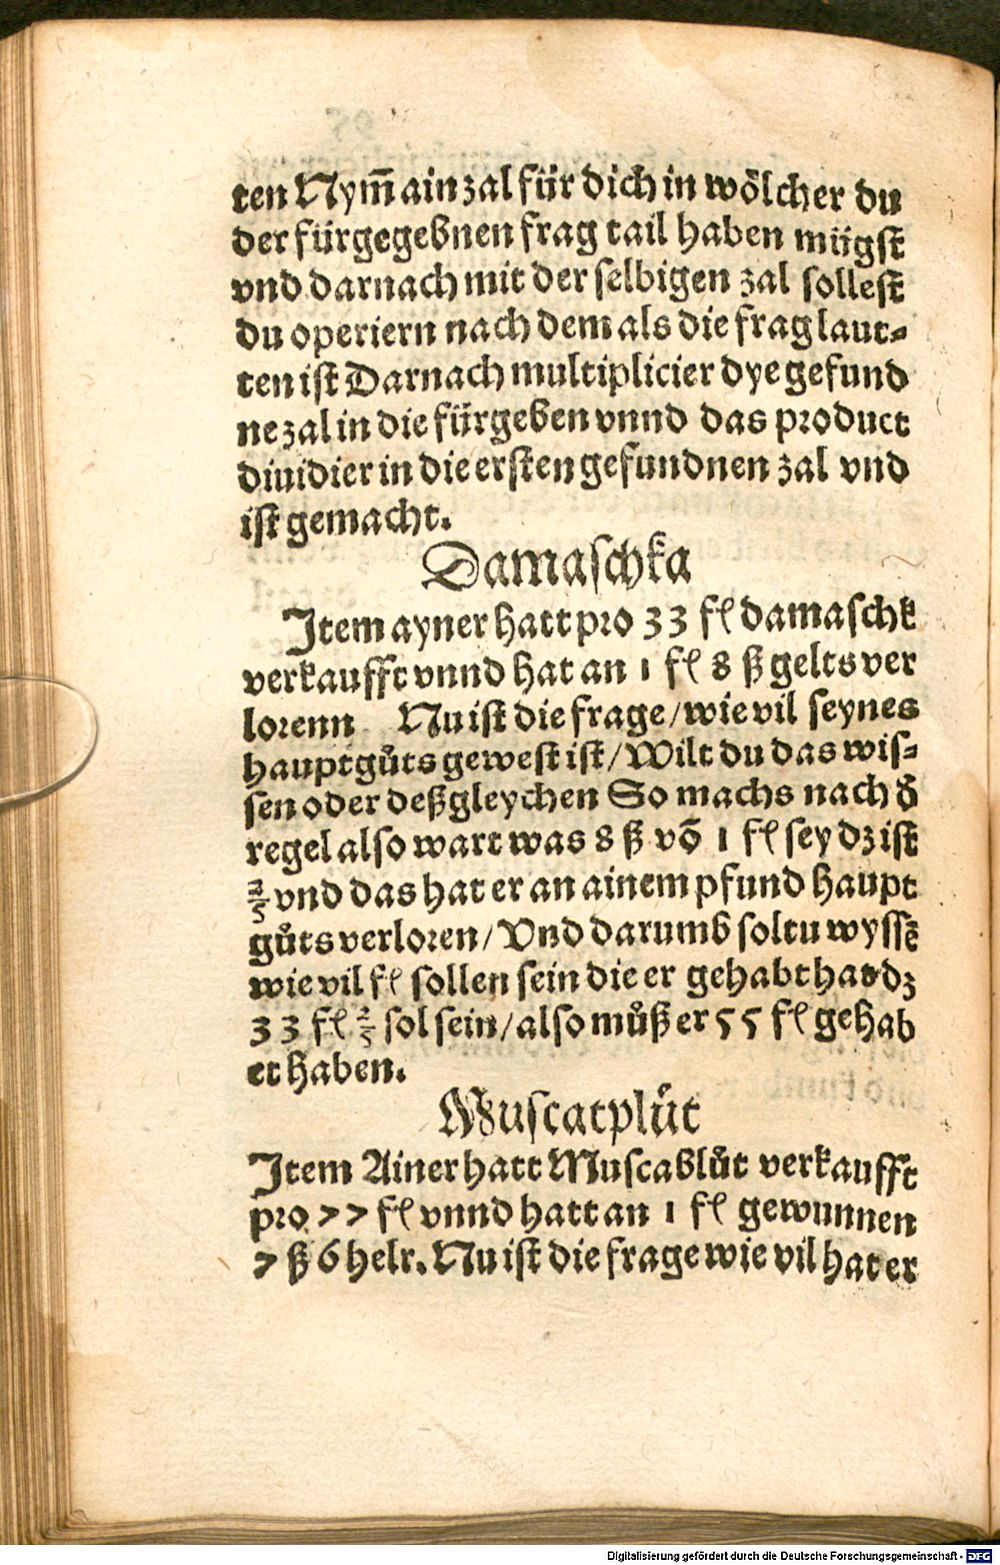 ten Nym̃ ain zal für dich in wölcher du
der fürgegebnen frag tail haben mügst
vnd darnach mit der selbigen zal sollest
du operiern nach dem als die frag laut⸗
ten ist Darnach multiplicier dye gefund
ne zal in die fürgeben vnnd das product
diuidier in die ersten gefundnen zal vnd
ist gemacht.
Damaschka
Item ayner hatt pro 33 fl damaschk
verkaufft vnnd hat an 1 fl 8 ß gelts ver
lorenn Nu ist die frage/wie vil seynes
hauptgůts gewest ist/Wilt du das wis⸗
sen oder deßgleychen So machs nach d̄
regel also wart was 8 ß võ 1 fl sey dz ist
2/5 vnd das hat er an ainem pfund haupt
gůts verloren/Vnd darumb soltu wyssẽ
wie vil fl sollen sein die er gehabt hat dz
33 fl 2/5 sol sein/also můß er 55 fl gehab
et haben.
Muscatplůt
Item Ainer hatt Muscablůt verkaufft
pro 77 fl vnnd hatt an 1 fl gewunnen
7 ß 6 helr. Nu ist die frage wie vil hat er
Digitalisierung gefördert durch die Deutsche Forschungsgemeinschaft - DFG